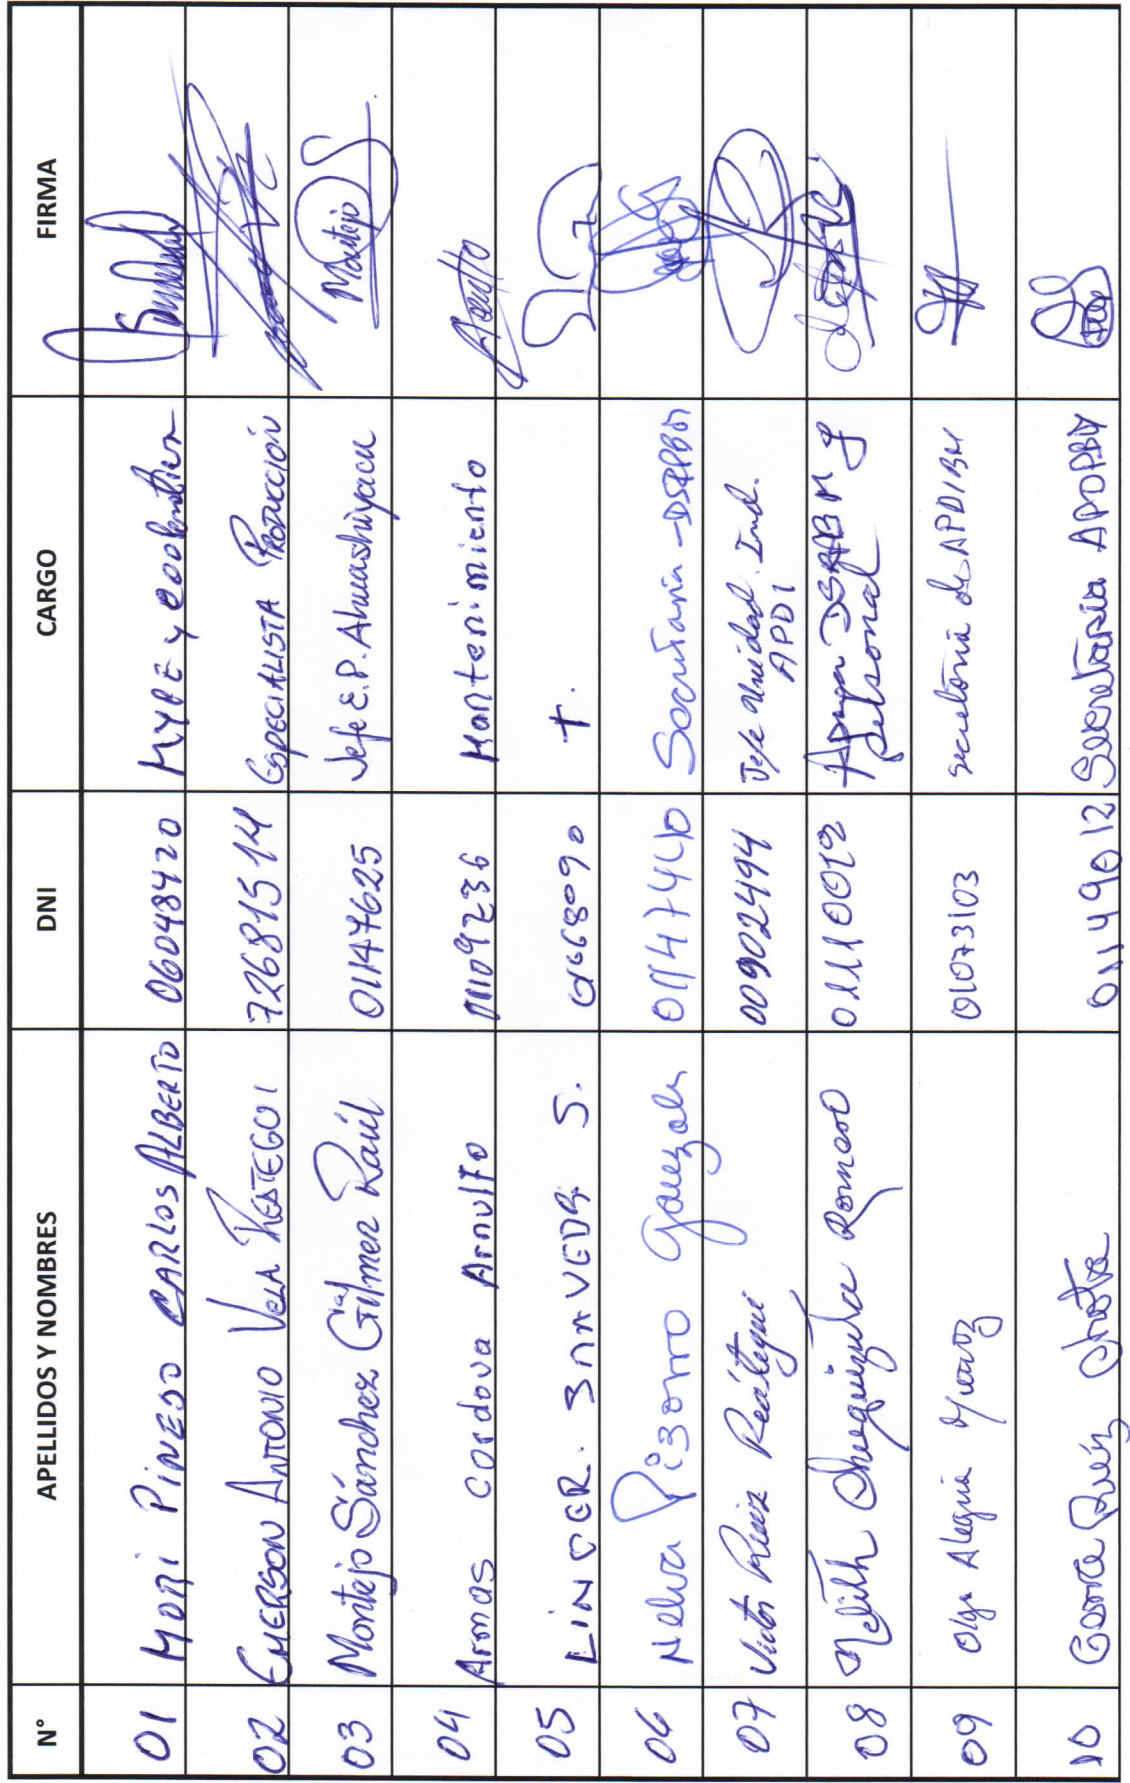 N° APELLIDOS Y NOMBRES DNI CARGO FIRMA
01 Mori Pinedo CARLOS ALBERTO 06048420 MYPE y
02 EMERSON ANTONIO VELA REATEGUI 72681514 ESPECIALISTA PRODUCCIÓN
03 Montejo Sánchez Gilmer Raúl 01147625 Jefe E.P. Ahuashiyacu Montejo
04 Armas Cordova Arnulfo 01109236 Mantenimiento
05 LINDER. SAAVEDR. S. T.
06 Nelva Pizarro Gonzales 01147440 Secretaria -
07 Victor Ruiz Reátegui 00902494 Jefe Unidad. Ind.
APDI
08 Romero 01110012 Apoyo
Personal
09 Olga Alegria 01073103 Secretaria de APDIBM
10 Ruiz 01149012 Secretaria